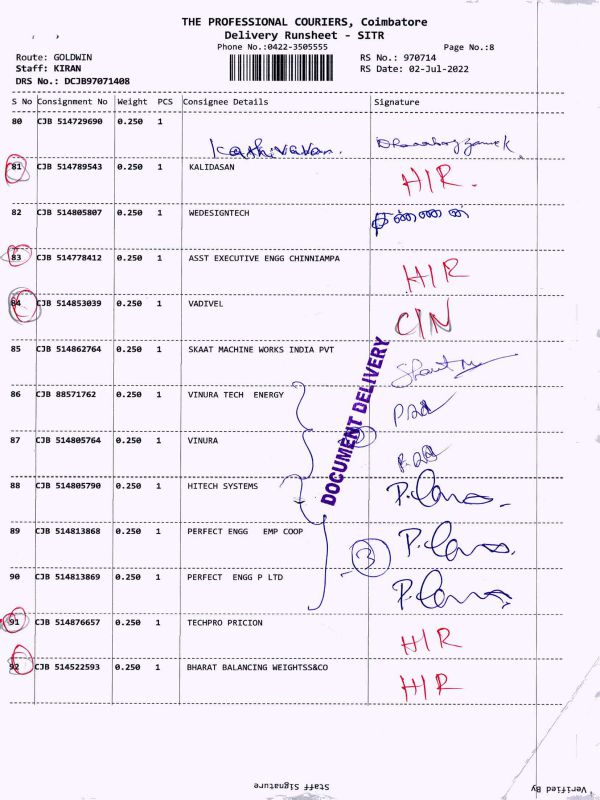 THE PROFESSIONAL COURIERS, Coimbatore
Delivery Runsheet - SITR
Phone No.:0422-3505555 Page No.:8
Route: GOLDWIN RS No.: 970714
Staff: KIRAN RS Date: 02-Jul-2022
DRS No.: DCJB97071408
S No Consignment No Weight PCS Consignee Details Signature
80 CJB 514729690 0.250 1
Kathiravan.
81 CJB 514789543 0.250 1 KALIDASAN H/R.
82 CJB 514805807 0.250 1 WEDESIGNTECH
83 CJB 514778412 0.250 1 ASST EXECUTIVE ENGG CHINNIAMPA H/R
84 CJB 514853039 0.250 1 VADIVEL C/N
85 CJB 514862764 0.250 1 SKAAT MACHINE WORKS INDIA PVT
86 CJB 88571762 0.250 1 VINURA TECH ENERGY
87 CJB 514805764 0.250 1 VINURA
DOCUMENT DELIVERY
88 CJB 514805790 0.250 1 HITECH SYSTEMS
89 CJB 514813868 0.250 1 PERFECT ENGG EMP COOP
3
90 CJB 514813869 0.250 1 PERFECT ENGG P LTD
91 CJB 514876657 0.250 1 TECHPRO PRICION H/R
92 CJB 514522593 0.250 1 BHARAT BALANCING WEIGHTSS&CO H/R
Staff Signature Verified By